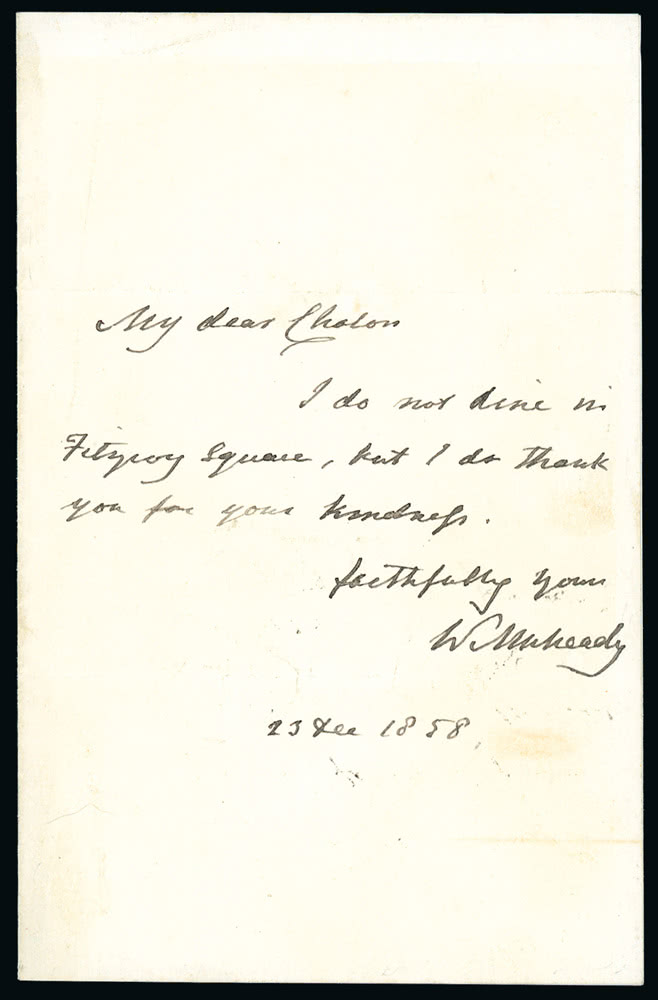 My dear Chalon
I do not dine in
Fitzroy Square, but I do thank
you for your kindness.
faithfully yours
W. Mulready
23 Dec 1858